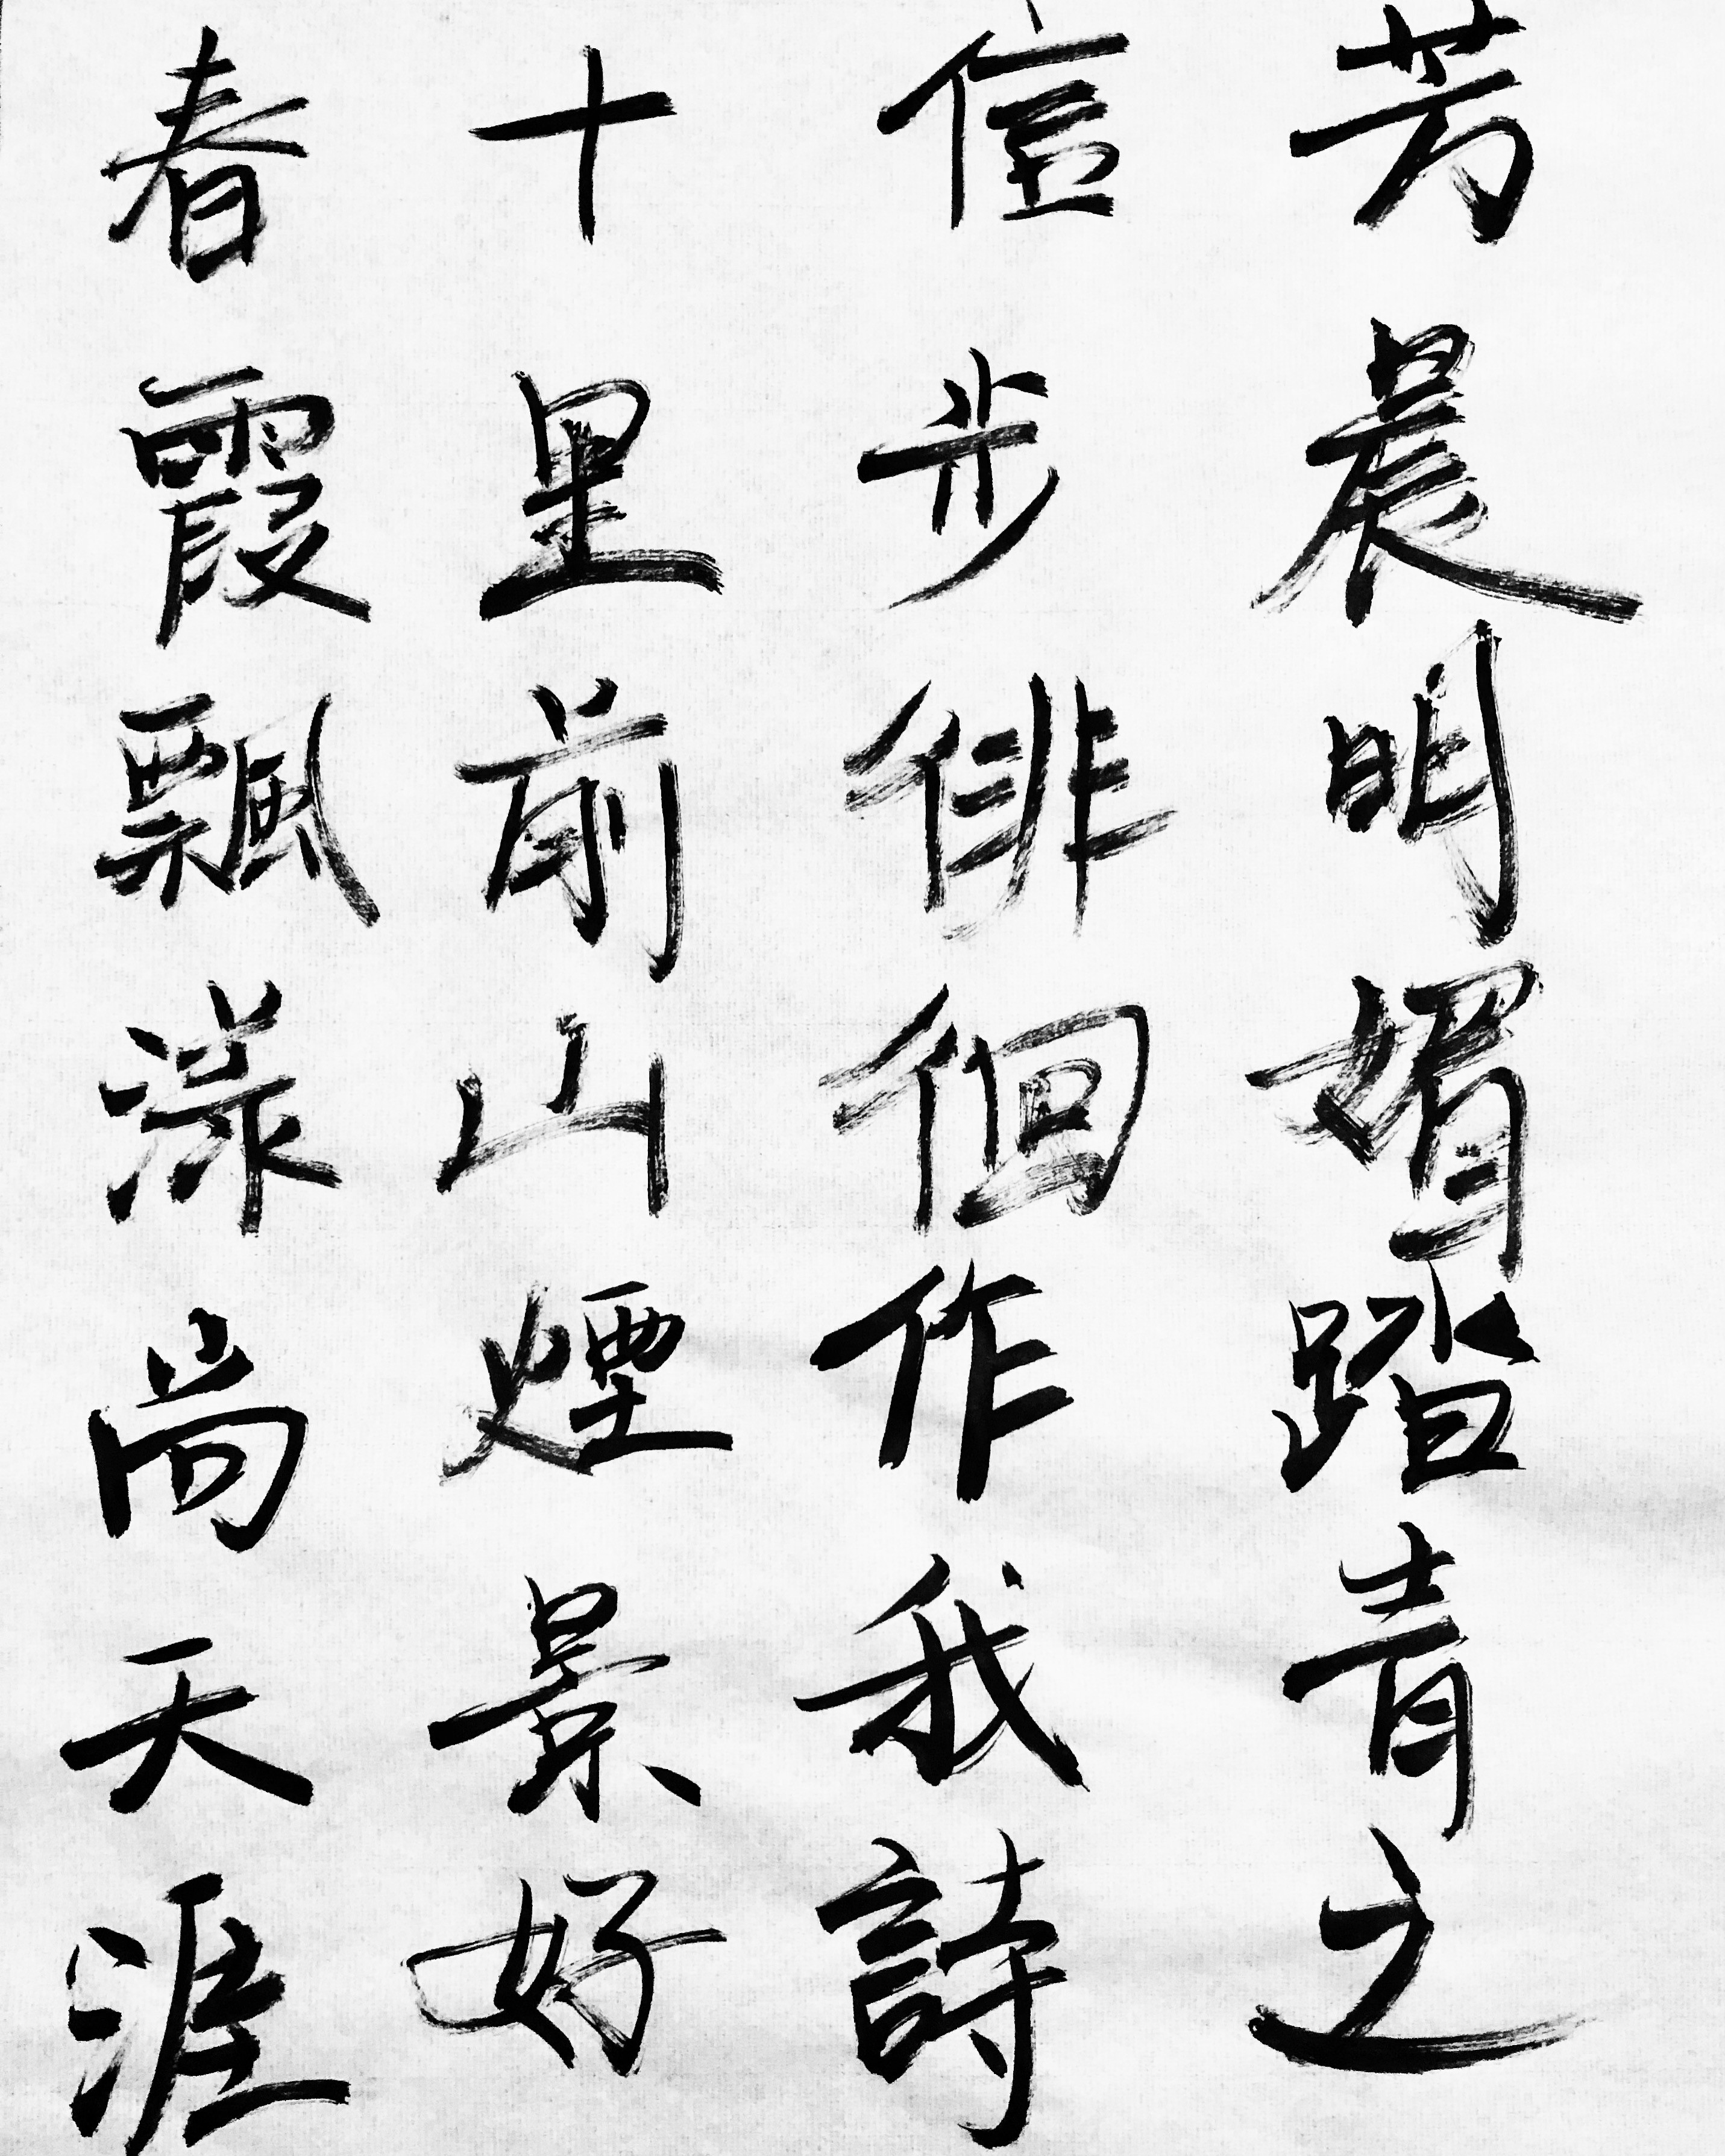 芳晨明媚踏青之
信步徘徊作我詩
十里前山煙景好
春霞飄漾尚天涯